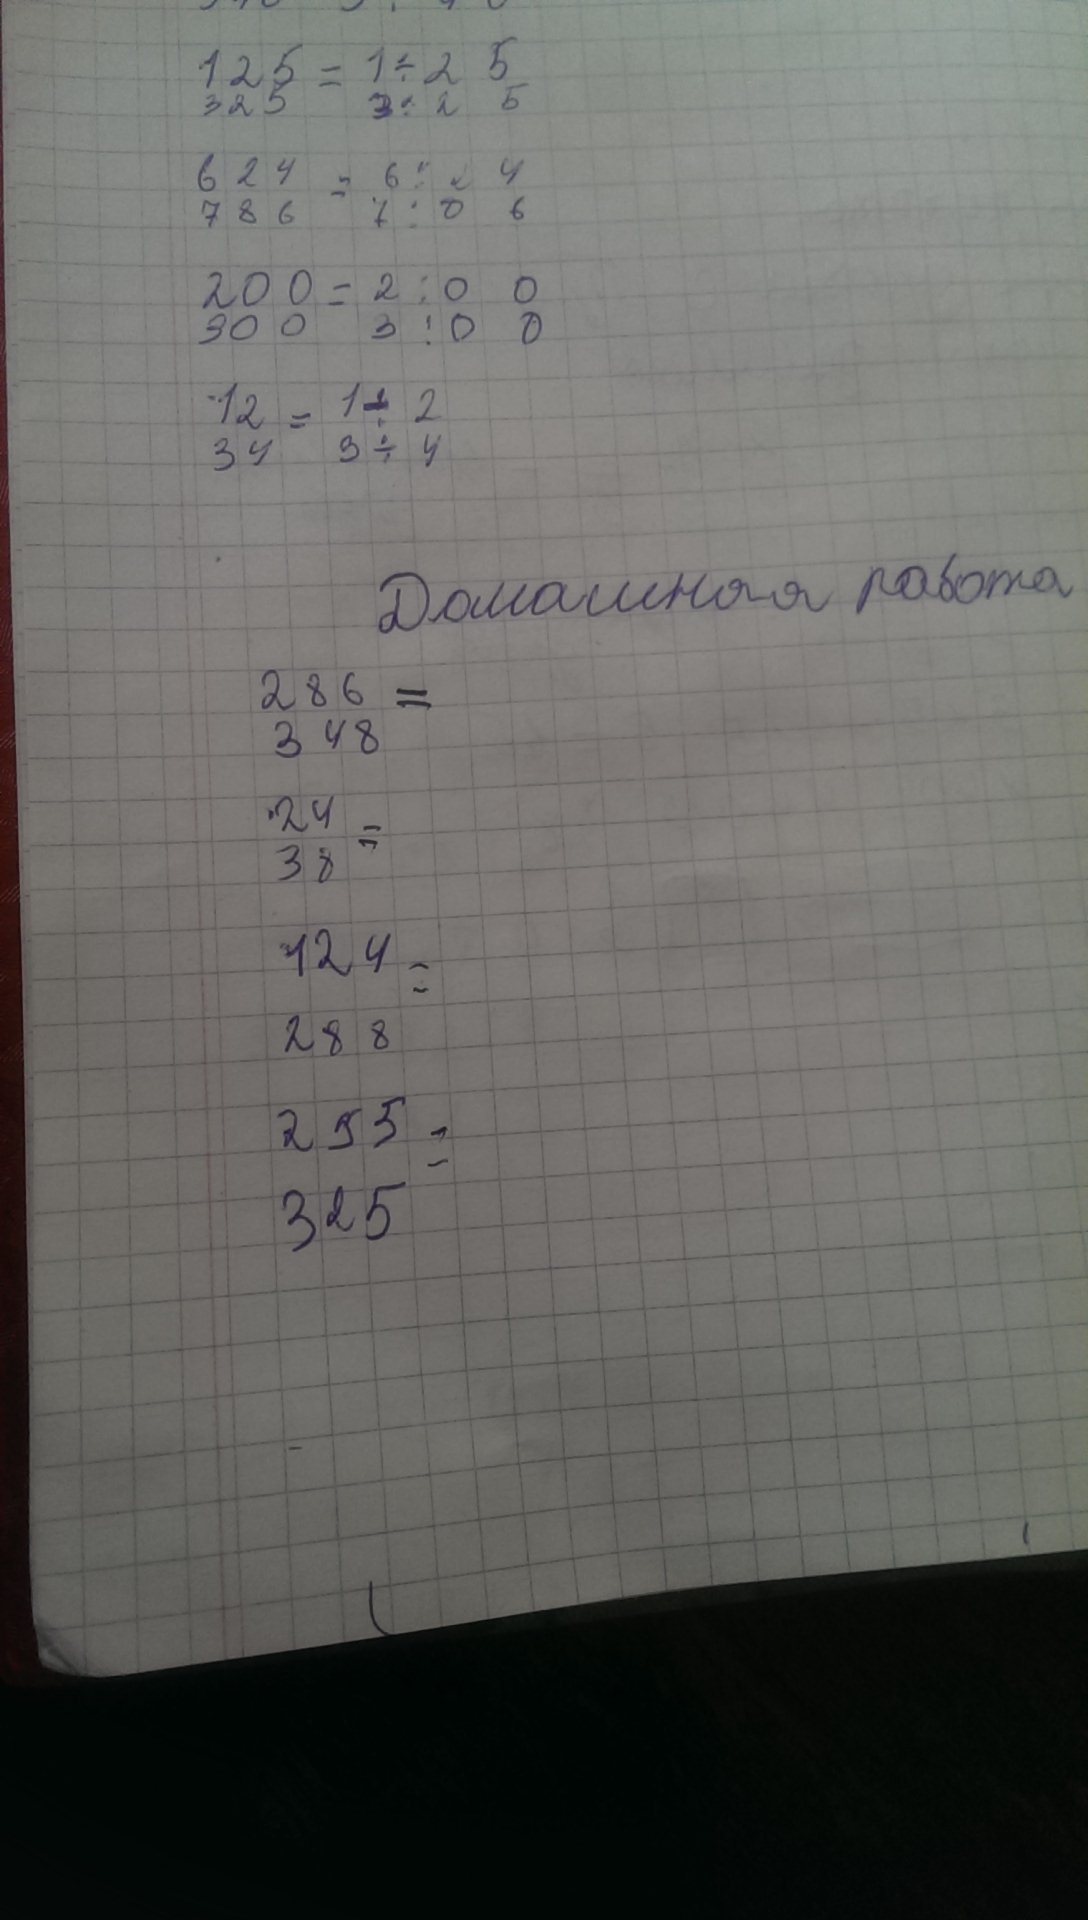 125 = 1÷2 5
325 3:2 5
624 = 6: 2 4
786 7:8 6
200 = 2:0 0
300 3:0 0
12 = 1÷2
34 3÷4
Домашная работа
286 =
348
24 =
38
124 =
288
255 =
325